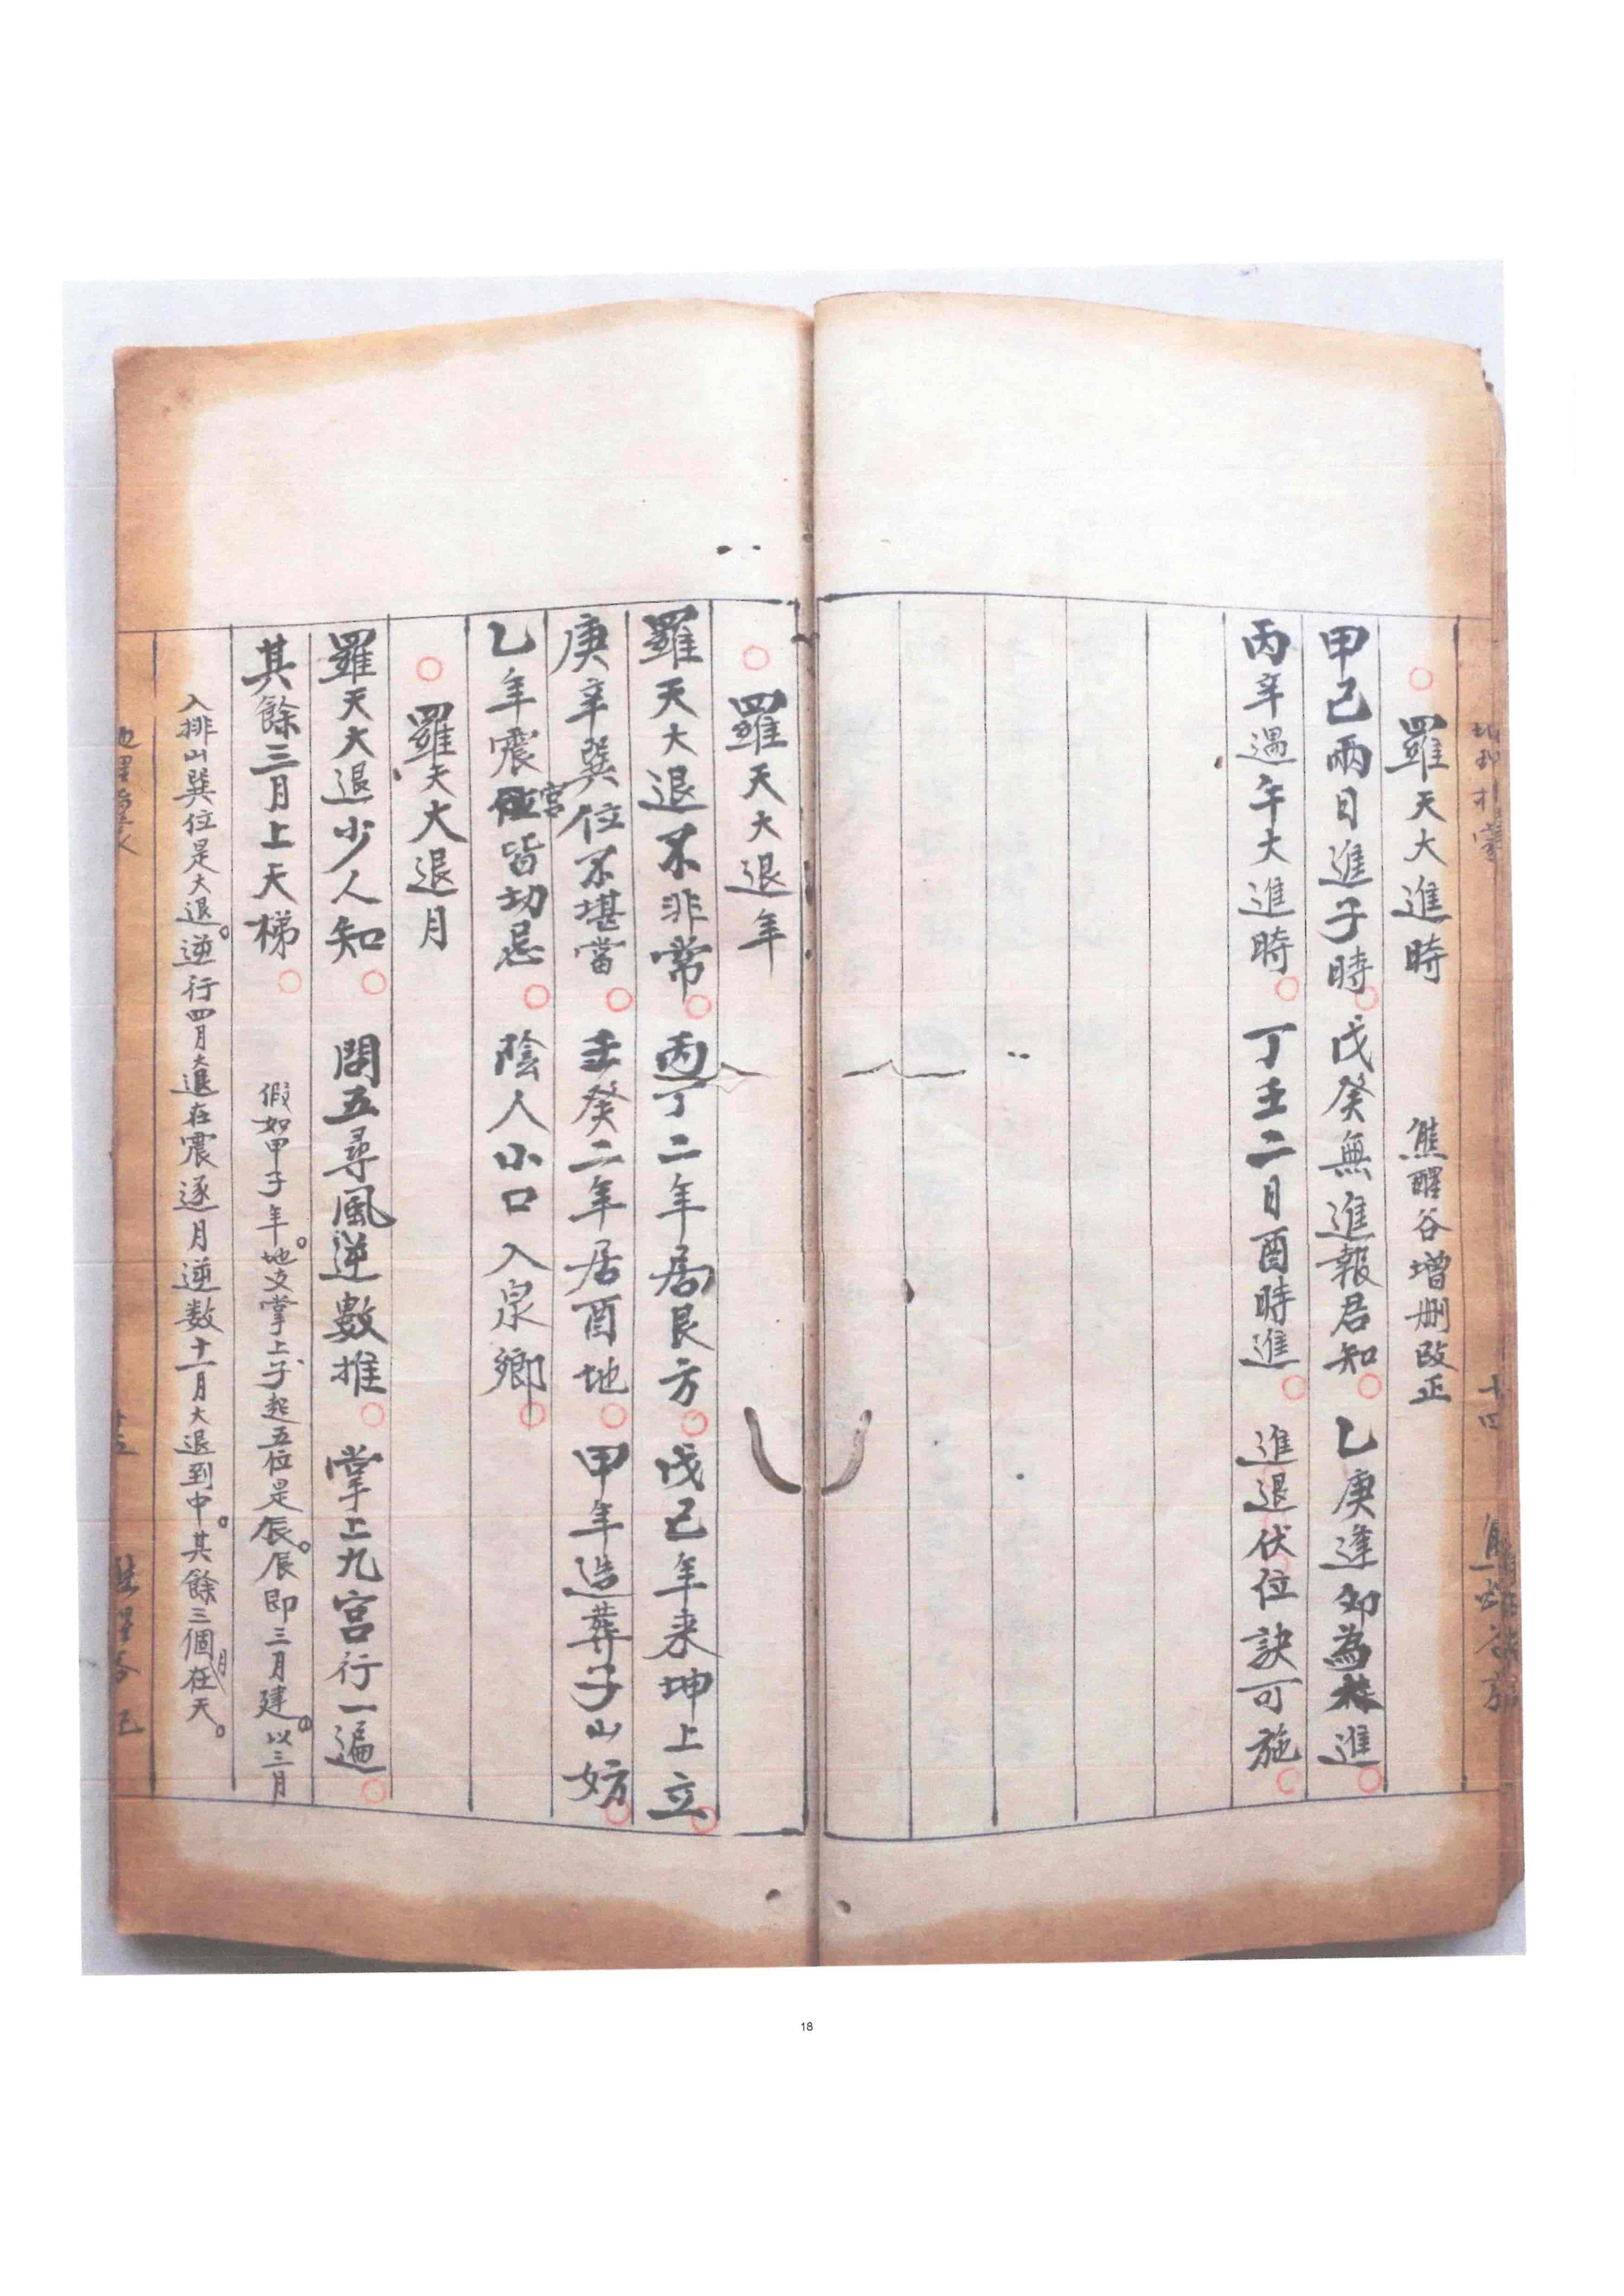 羅天大進時　熊醒谷增刪改正
甲己兩日進子時　戊癸無進報君知　乙庚逢卯為進
丙辛過午大進時　丁壬二日酉時進　進退伏位訣可施
十四
羅天大退年
羅天大退不非常　丙丁二年居艮方　戊己年来坤上立
庚辛巽位不堪當　壬癸二年居酉地　甲年造葬子山妨
乙年震宮皆切忌　陰人小口入泉鄉
羅天大退月
羅天大退少人知　問五尋風逆數推　掌上九宮行一遍
其餘三月上天梯　假如甲子年。地支掌上子、起五位是辰。辰即三月建。以三月
入排山巽位是大退。逆行四月大退在震逐月逆数十一月大退到中。其餘三個月在天。
18